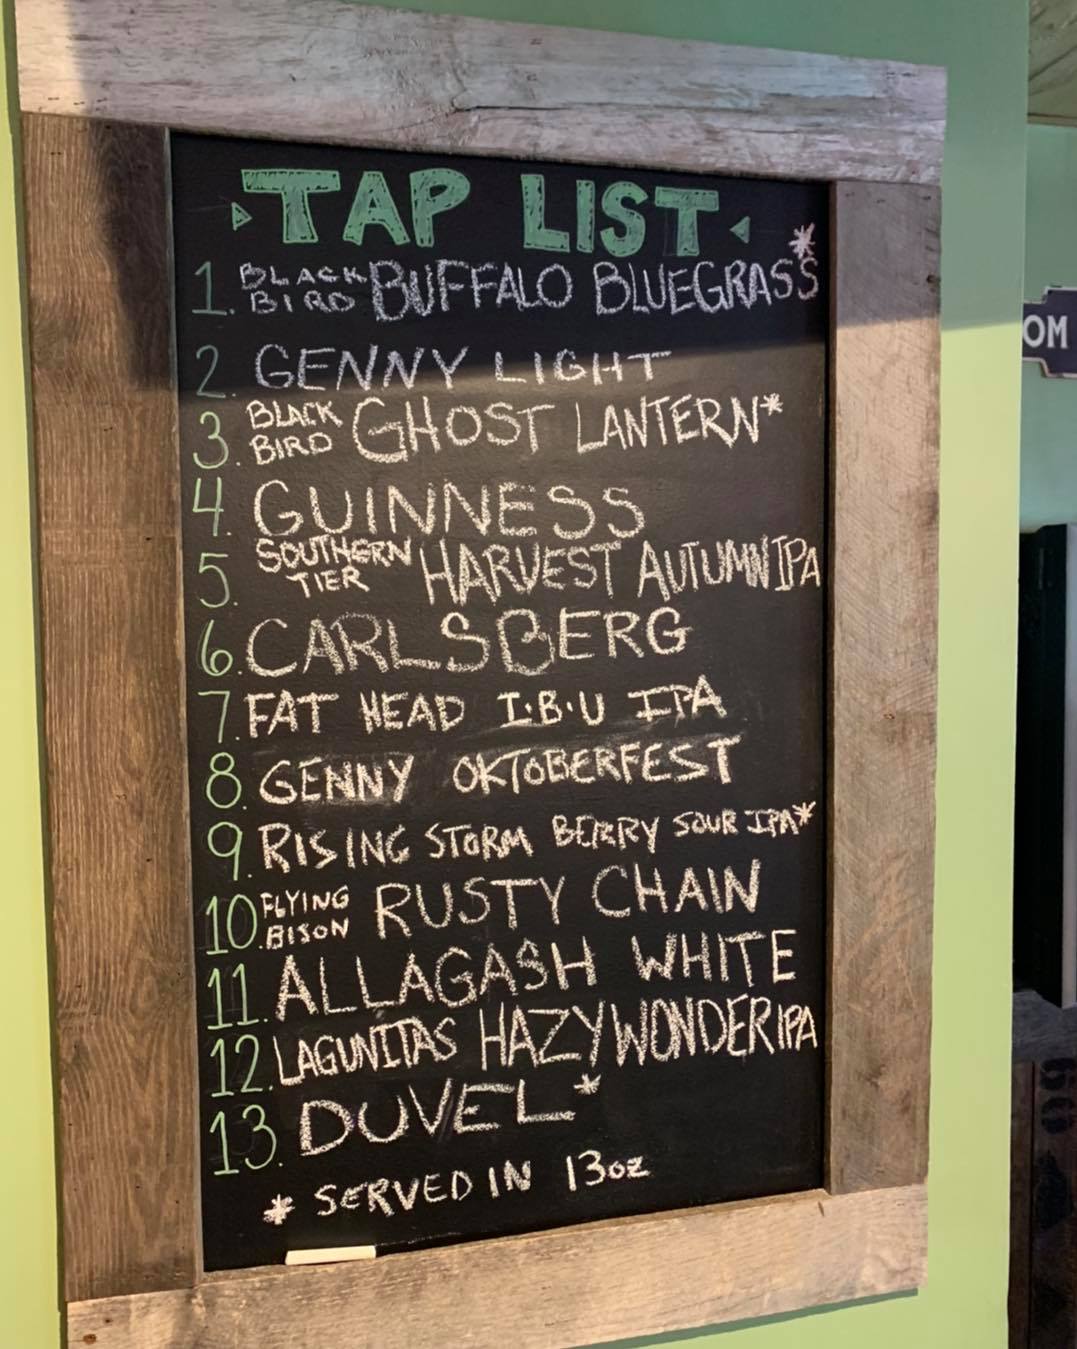 TAP LIST
1. BLACK BIRD BUFFALO BLUEGRASS*
2. GENNY LIGHT
3. BLACK BIRD GHOST LANTERN*
4. GUINNESS
5. SOUTHERN TIER HARVEST AUTUMN IPA
6. CARLSBERG
7. FAT HEAD I·B·U IPA
8. GENNY OKTOBERFEST
9. RISING STORM BERRY SOUR IPA*
10. FLYING BISON RUSTY CHAIN
11. ALLAGASH WHITE
12. LAGUNITAS HAZY WONDER IPA
13. DUVEL*
* SERVED IN 13oz
OM